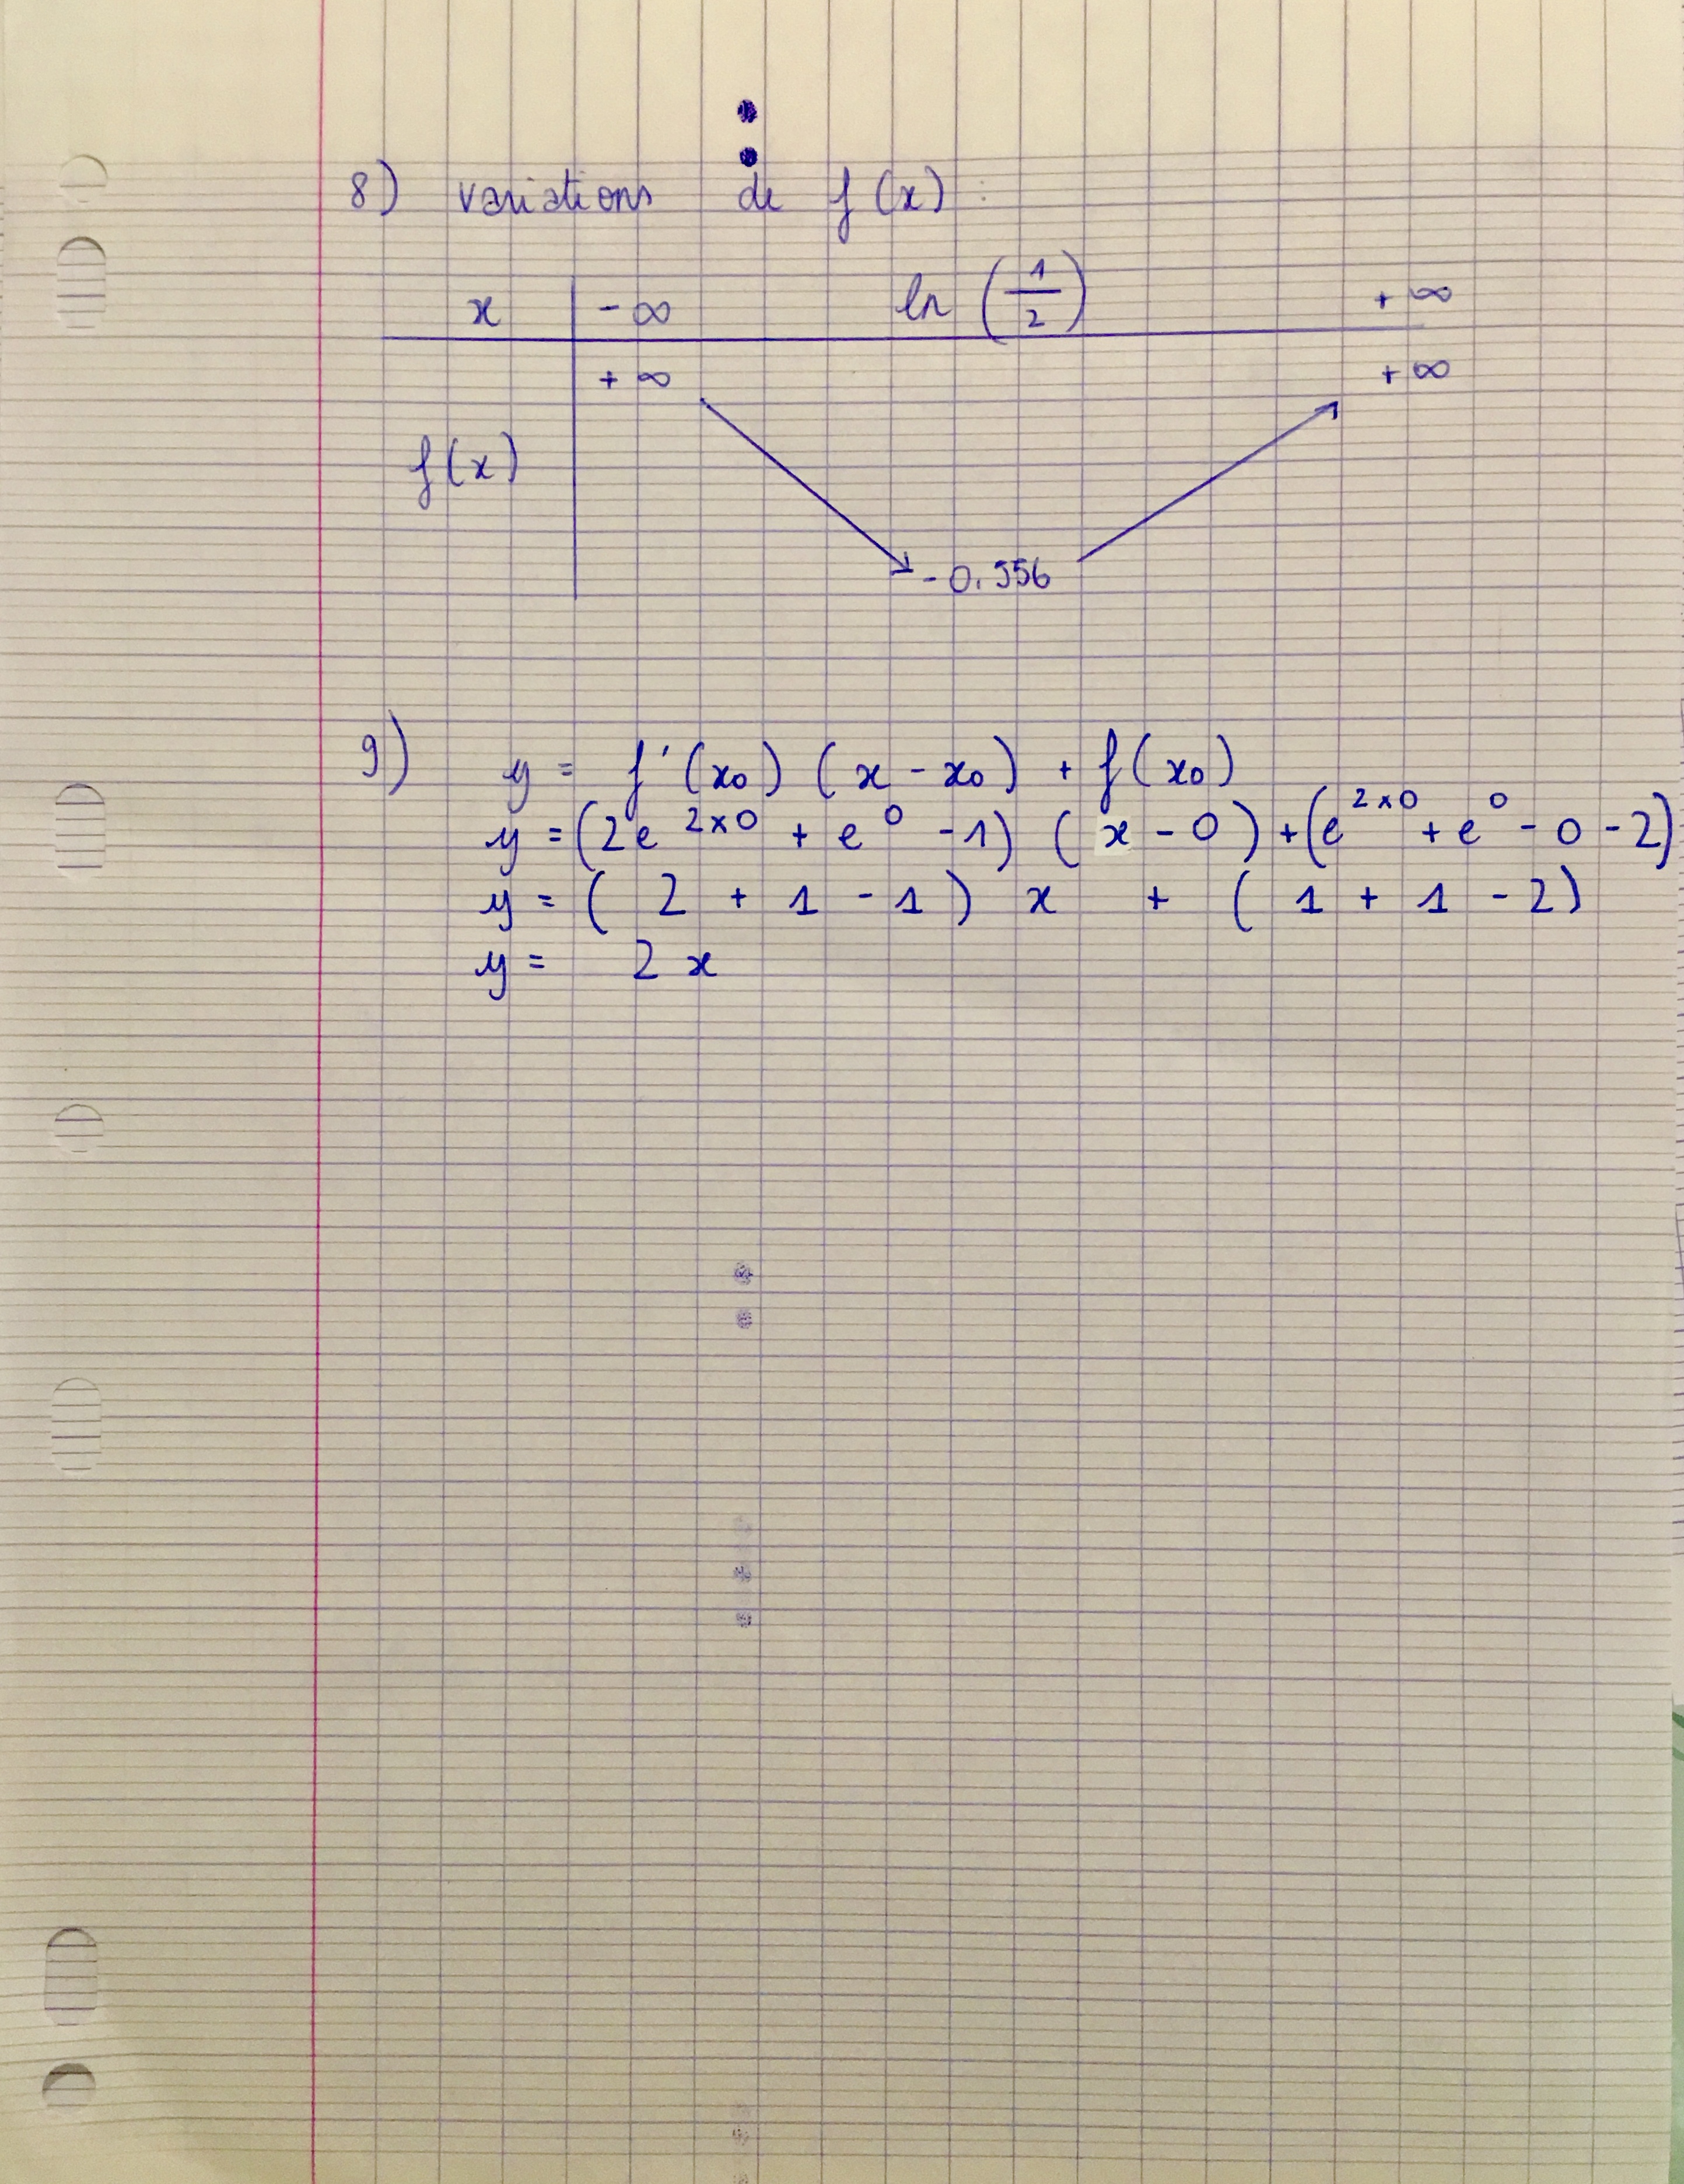 8) variations de f(x) :
x | -∞ ln(1/2) +∞
+∞ +∞
f(x)
-0.556
9) y = f'(x₀) (x - x₀) + f(x₀)
y = (2e^{2×0} + e^0 - 1) (x - 0) + (e^{2×0} + e^0 - 0 - 2)
y = (2 + 1 - 1) x + (1 + 1 - 2)
y = 2x